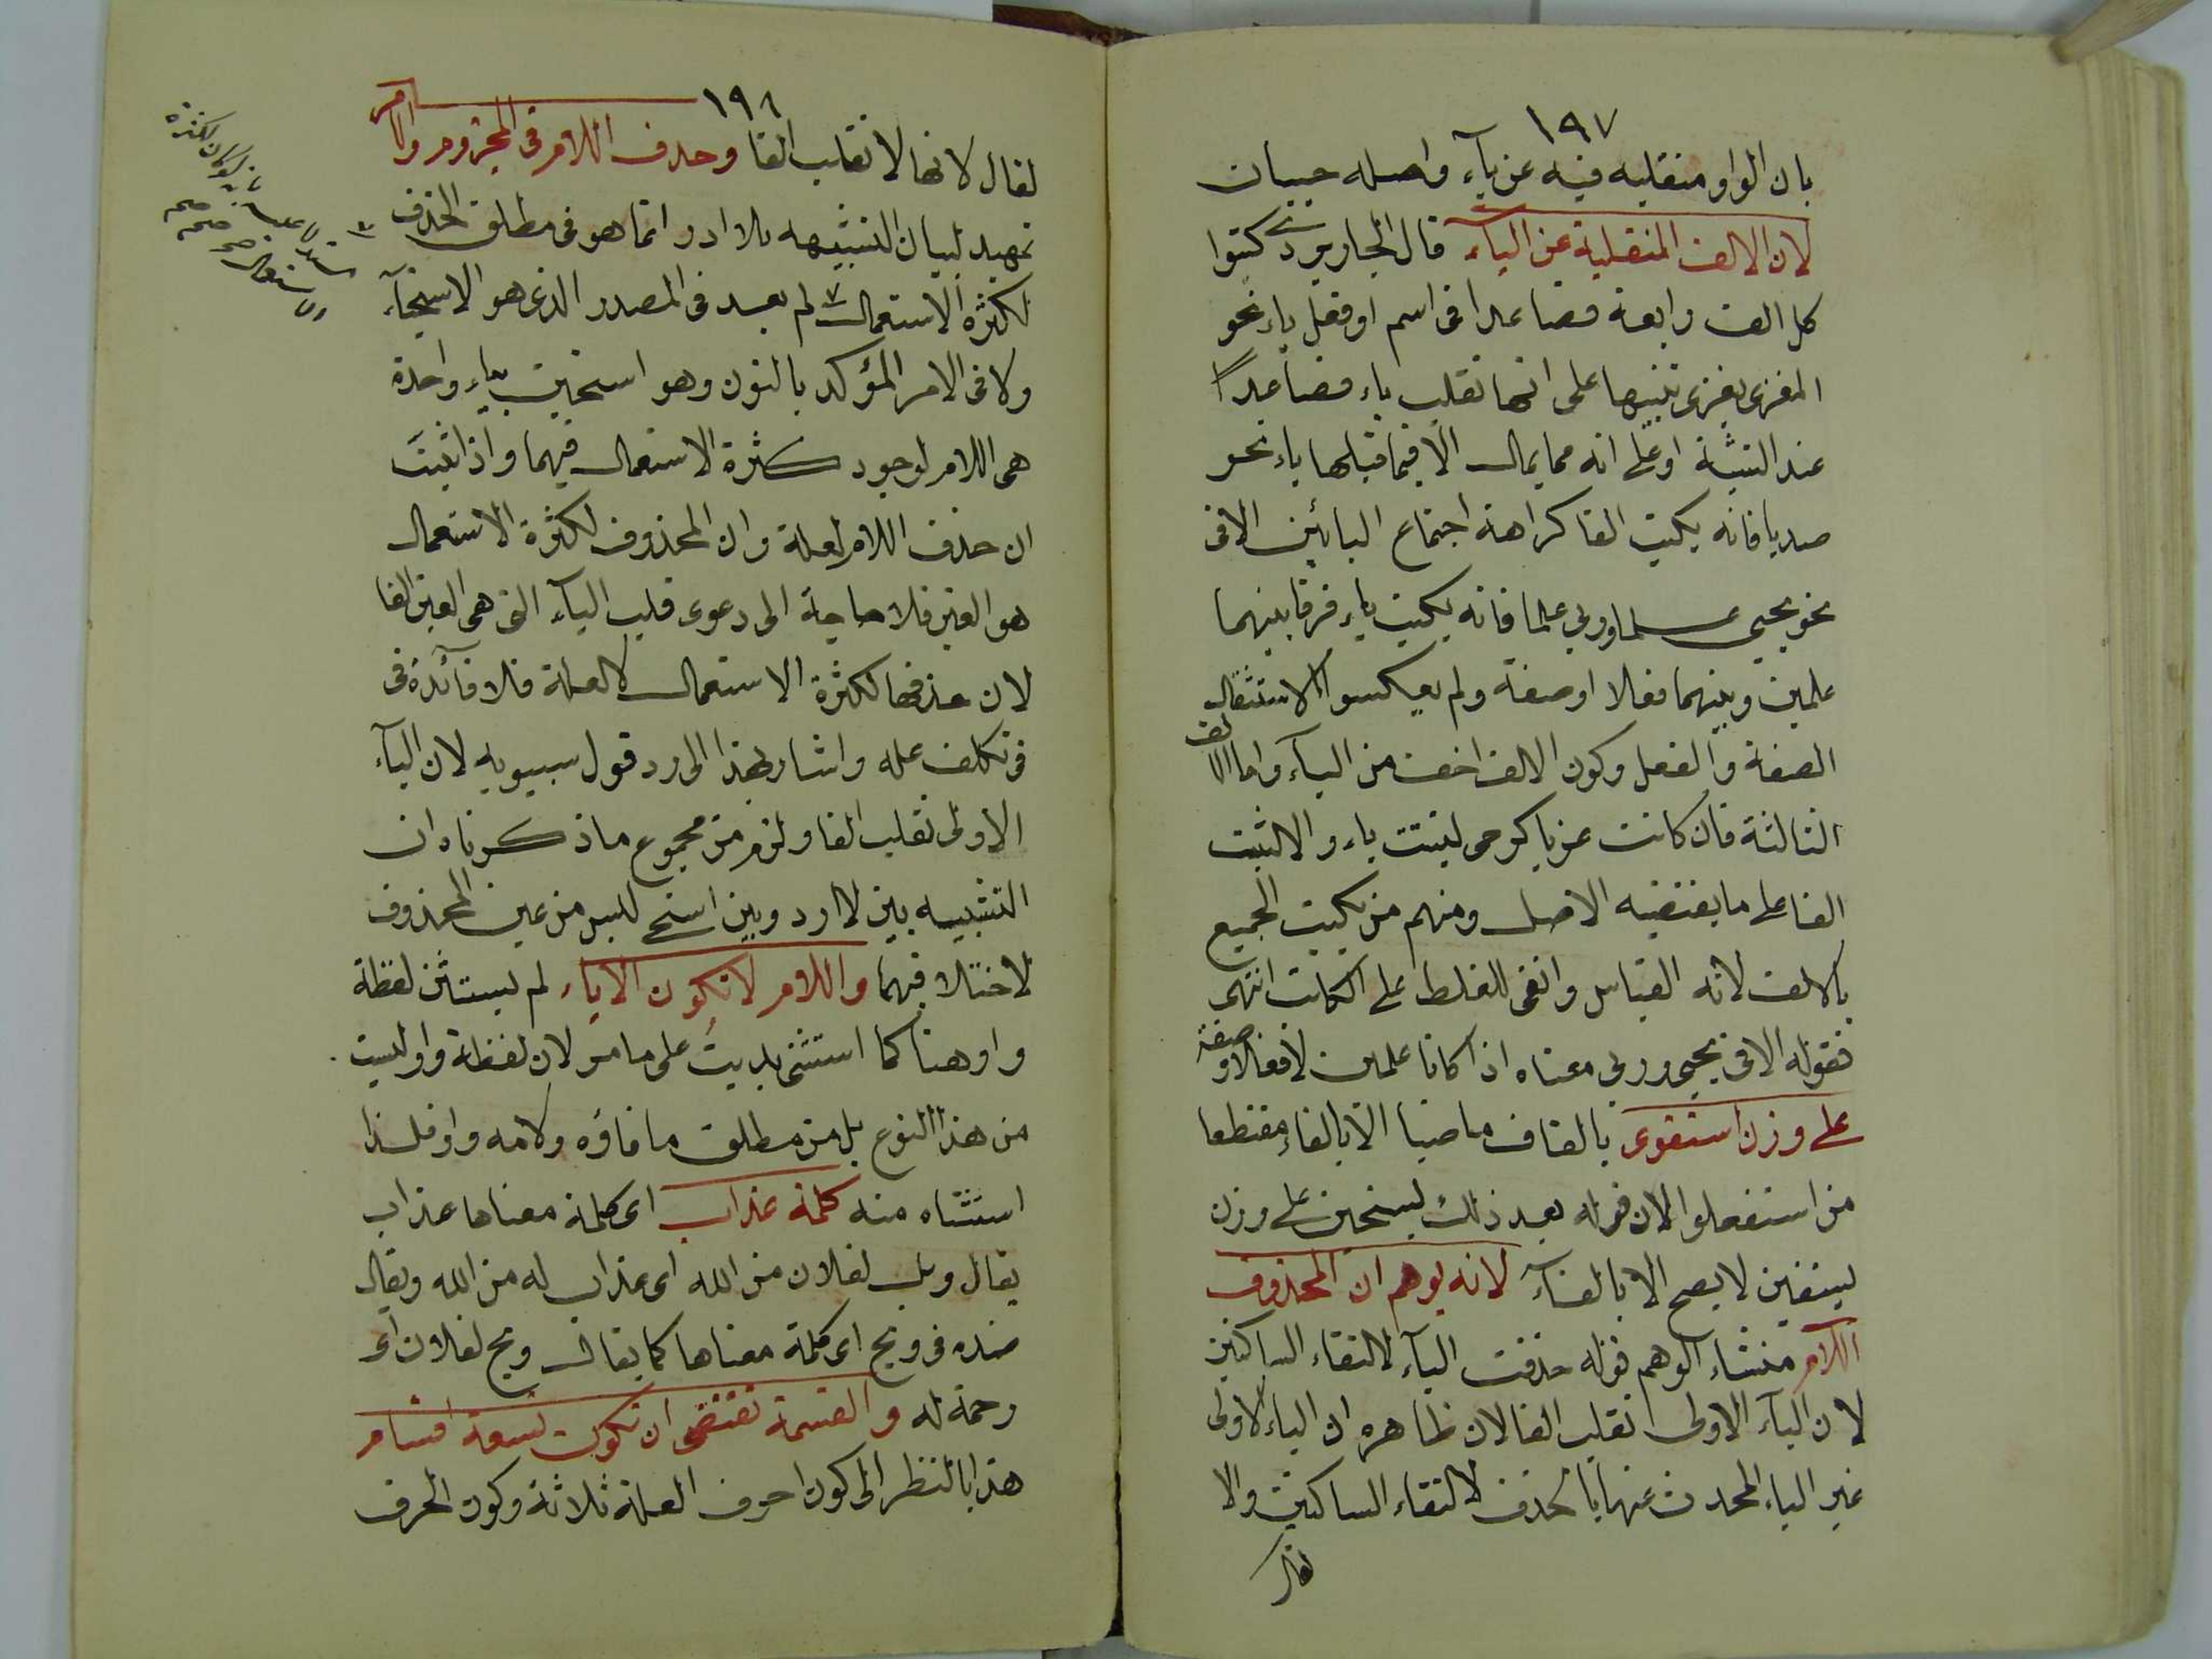 ١٩٧
بان الواو منقلبه فيه عن ياء واصله حييان
لان الالف المنقلبة عن الياء قال الجاربردى كتبوا
كل الف رابعة فصاعدا فى اسم او فعل ياء نحو
المغزى يغزى تنبيها على انها تقلب ياء فصاعدا
عند التثنية او على انه مما يمال الا فيما قبلها ياء نحو
صديا فانه يكتب الفا كراهة اجتماع اليائين الا فى
نحو يحيى علما وريى علما فانه يكتب ياء فرقا بينهما
علمين وبينهما فعلا او صفة ولم يعكسوا لاستثقال
الصفة والفعل وكون الالف اخف من الياء واما الالف
الثالثة فان كانت عن ياء كرحى ليثبت ياء والا لثبت
الفا على ما يقتضيه الاصل ومنهم من يكتب الجميع
بالالف لانه القياس وانفى للغلط على الكاتب انتهى
فقوله الا فى يحيى وريى معناه اذا كانا علمين لا فعلا او صفة
على وزن استقوى بالقاف ماضيا الا بالفاء مقتطعا
من استفعلوا لان قوله بعد ذلك يستحين على وزن
يستفين لا يصح الا بالفاء لانه يوهم ان المحذوف
اللام منشاء الوهم قوله حذفت الياء لالتقاء الساكنين
لان الياء الاولى تقلب الفا لان ظاهره ان الياء الاولى
غير الياء المحدث عنها بالحذف لالتقاء الساكنين والا
لقال
١٩٨
لقال لانها لا تقلب الفا وحذف اللام فى المجزوم والامر
تمهيد لبيان التشبيه بلا ادر انما هو فى مطلق الحذف
لكثرة الاستعمال لم يعد فى المصدر الذى هو الاستحياء
ولا فى الامر المؤكد بالنون وهو استحين بياء واحدة
هى اللام لوجود كثرة الاستعمال فيهما واذا ثبت
ان حذف اللام لعلة وان المحذوف لكثرة الاستعمال
هو العين فلا حاجة الى دعوى قلب الياء التى هى العين الفا
لان حذفها لكثرة الاستعمال لا لعلة فلا فائدة فى
فى تكلف علة واشار بهذا الى رد قول سيبويه لان الياء
الاولى تقلب الفا ولزم من مجموع ما ذكرناه ان
التشبيه بين لا ارد وبين استح ليس من عين المحذوف
لاختلافهما واللام لا تكون الا ياء لم يستثن لفظة
واو هنا كما استثنى يديت على ما مر لان لفظة واو ليست
من هذا النوع بل من مطلق ما فاؤه ولامه واو فلذا
استثناه منه كلمة عذاب اى كلمة معناها عذاب
يقال ويل لفلان من الله اى عذاب له من الله ويقال
ضده فى ويح اى كلمة معناها كما يقال ويح لفلان اى
رحمة له والقسمة تقتضى ان تكون تسعة اقسام
هذا بالنظر الى كون احرف العلة ثلاثة وكون الحرف